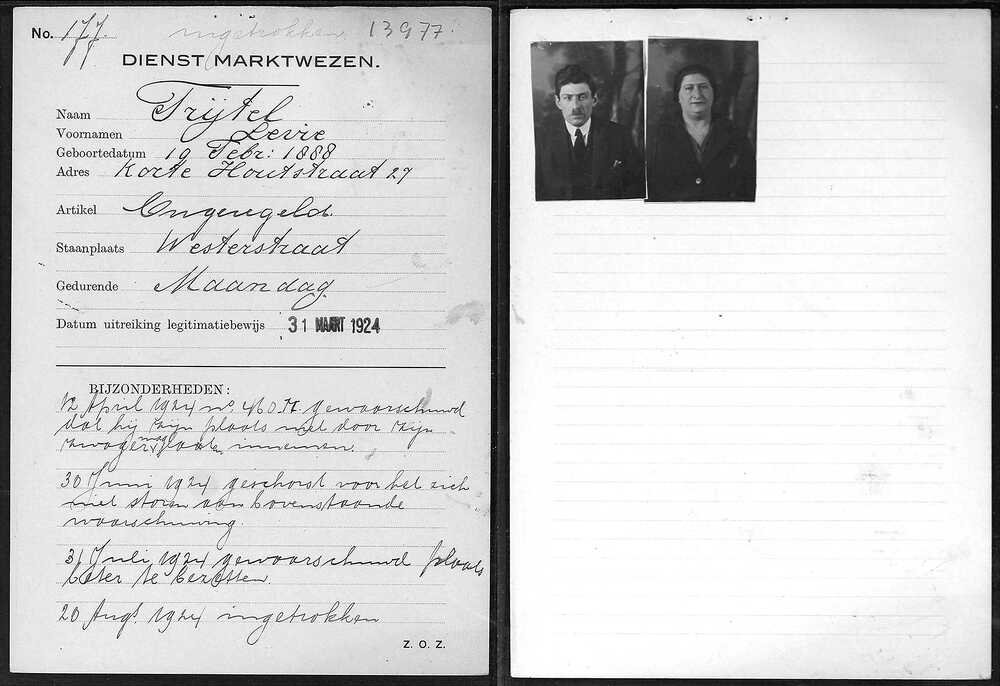 No. 177. ingetrokken 13977
DIENST MARKTWEZEN.
Naam Trijtel
Voornamen Levie
Geboortedatum 19 Febr: 1888
Adres Korte Houtstraat 27
Artikel Ongeregeld.
Staanplaats Westerstraat
Gedurende Maandag.
Datum uitreiking legitimatiebewijs 31 MAART 1924
BIJZONDERHEDEN:
12 April 1924 no. gewaarschuwd
dat hij zijn plaats niet door zijn
zwager mag laten innemen.
30 Juni 1924 geschorst voor het zich
niet storen aan bovenstaande
waarschuwing.
31 Juli 1924 gewaarschuwd plaats
beter te bezetten.
20 Augt. 1924 ingetrokken
Z. O. Z.